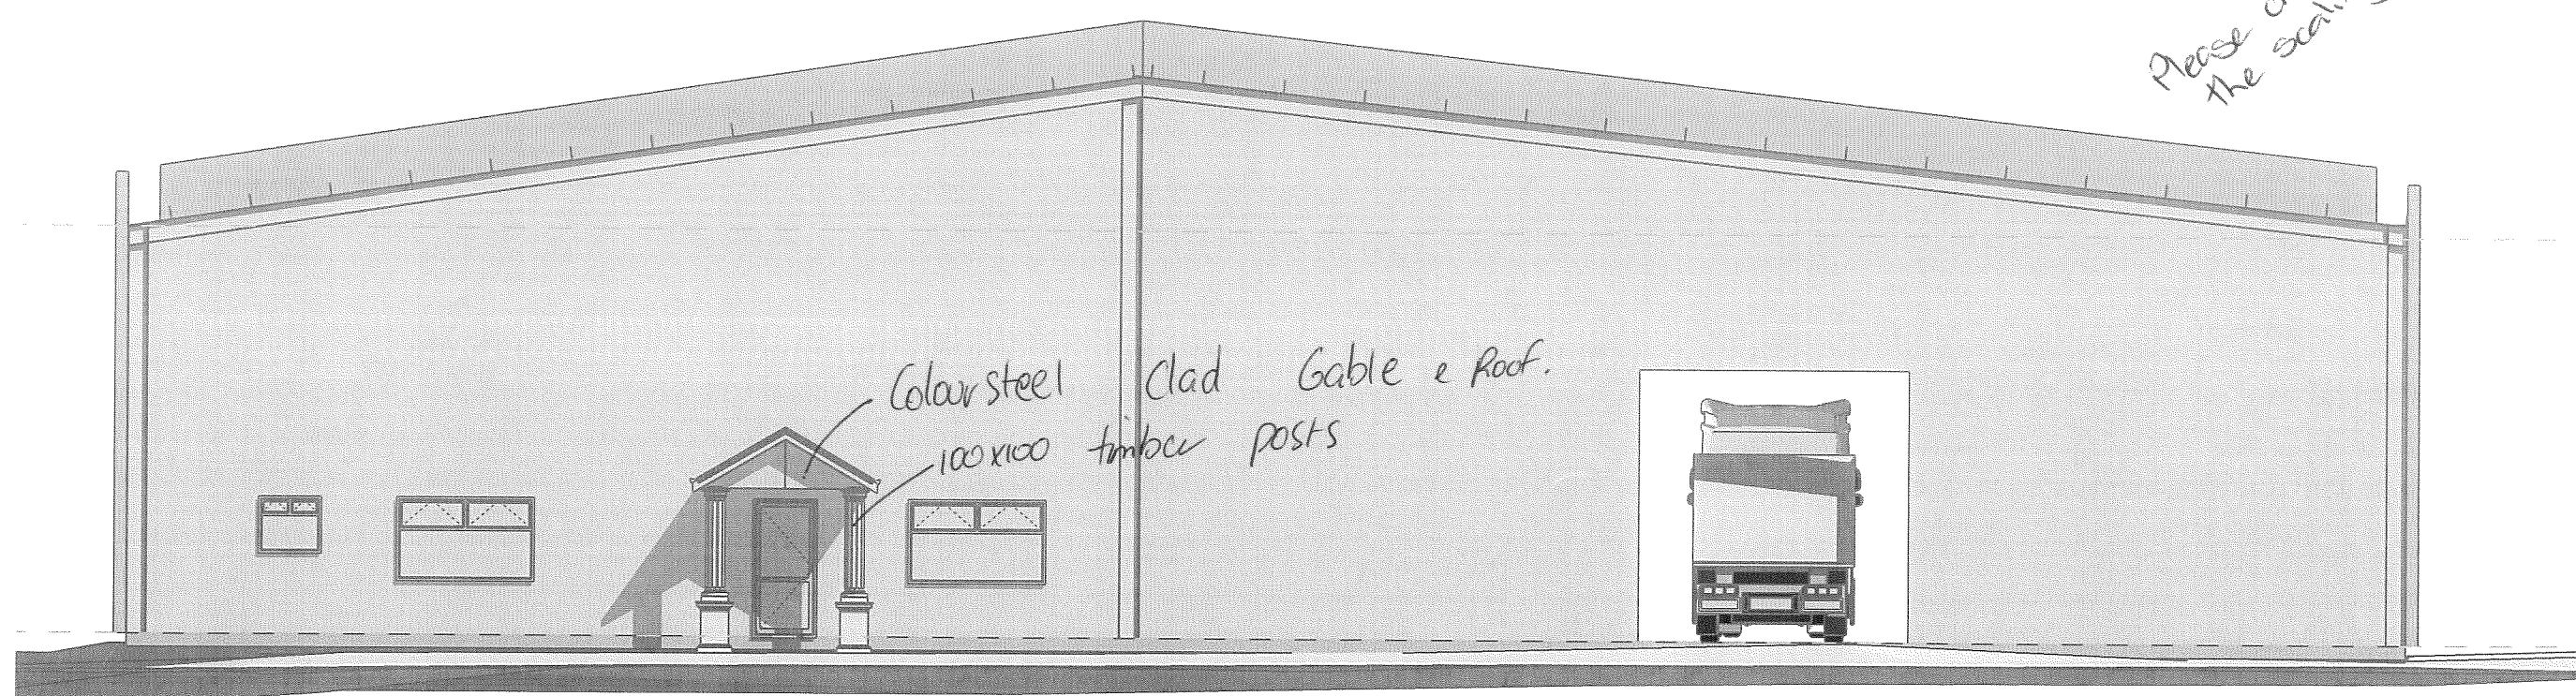 Please
the
Coloursteel Clad Gable e Roof.
100x100 timber posts